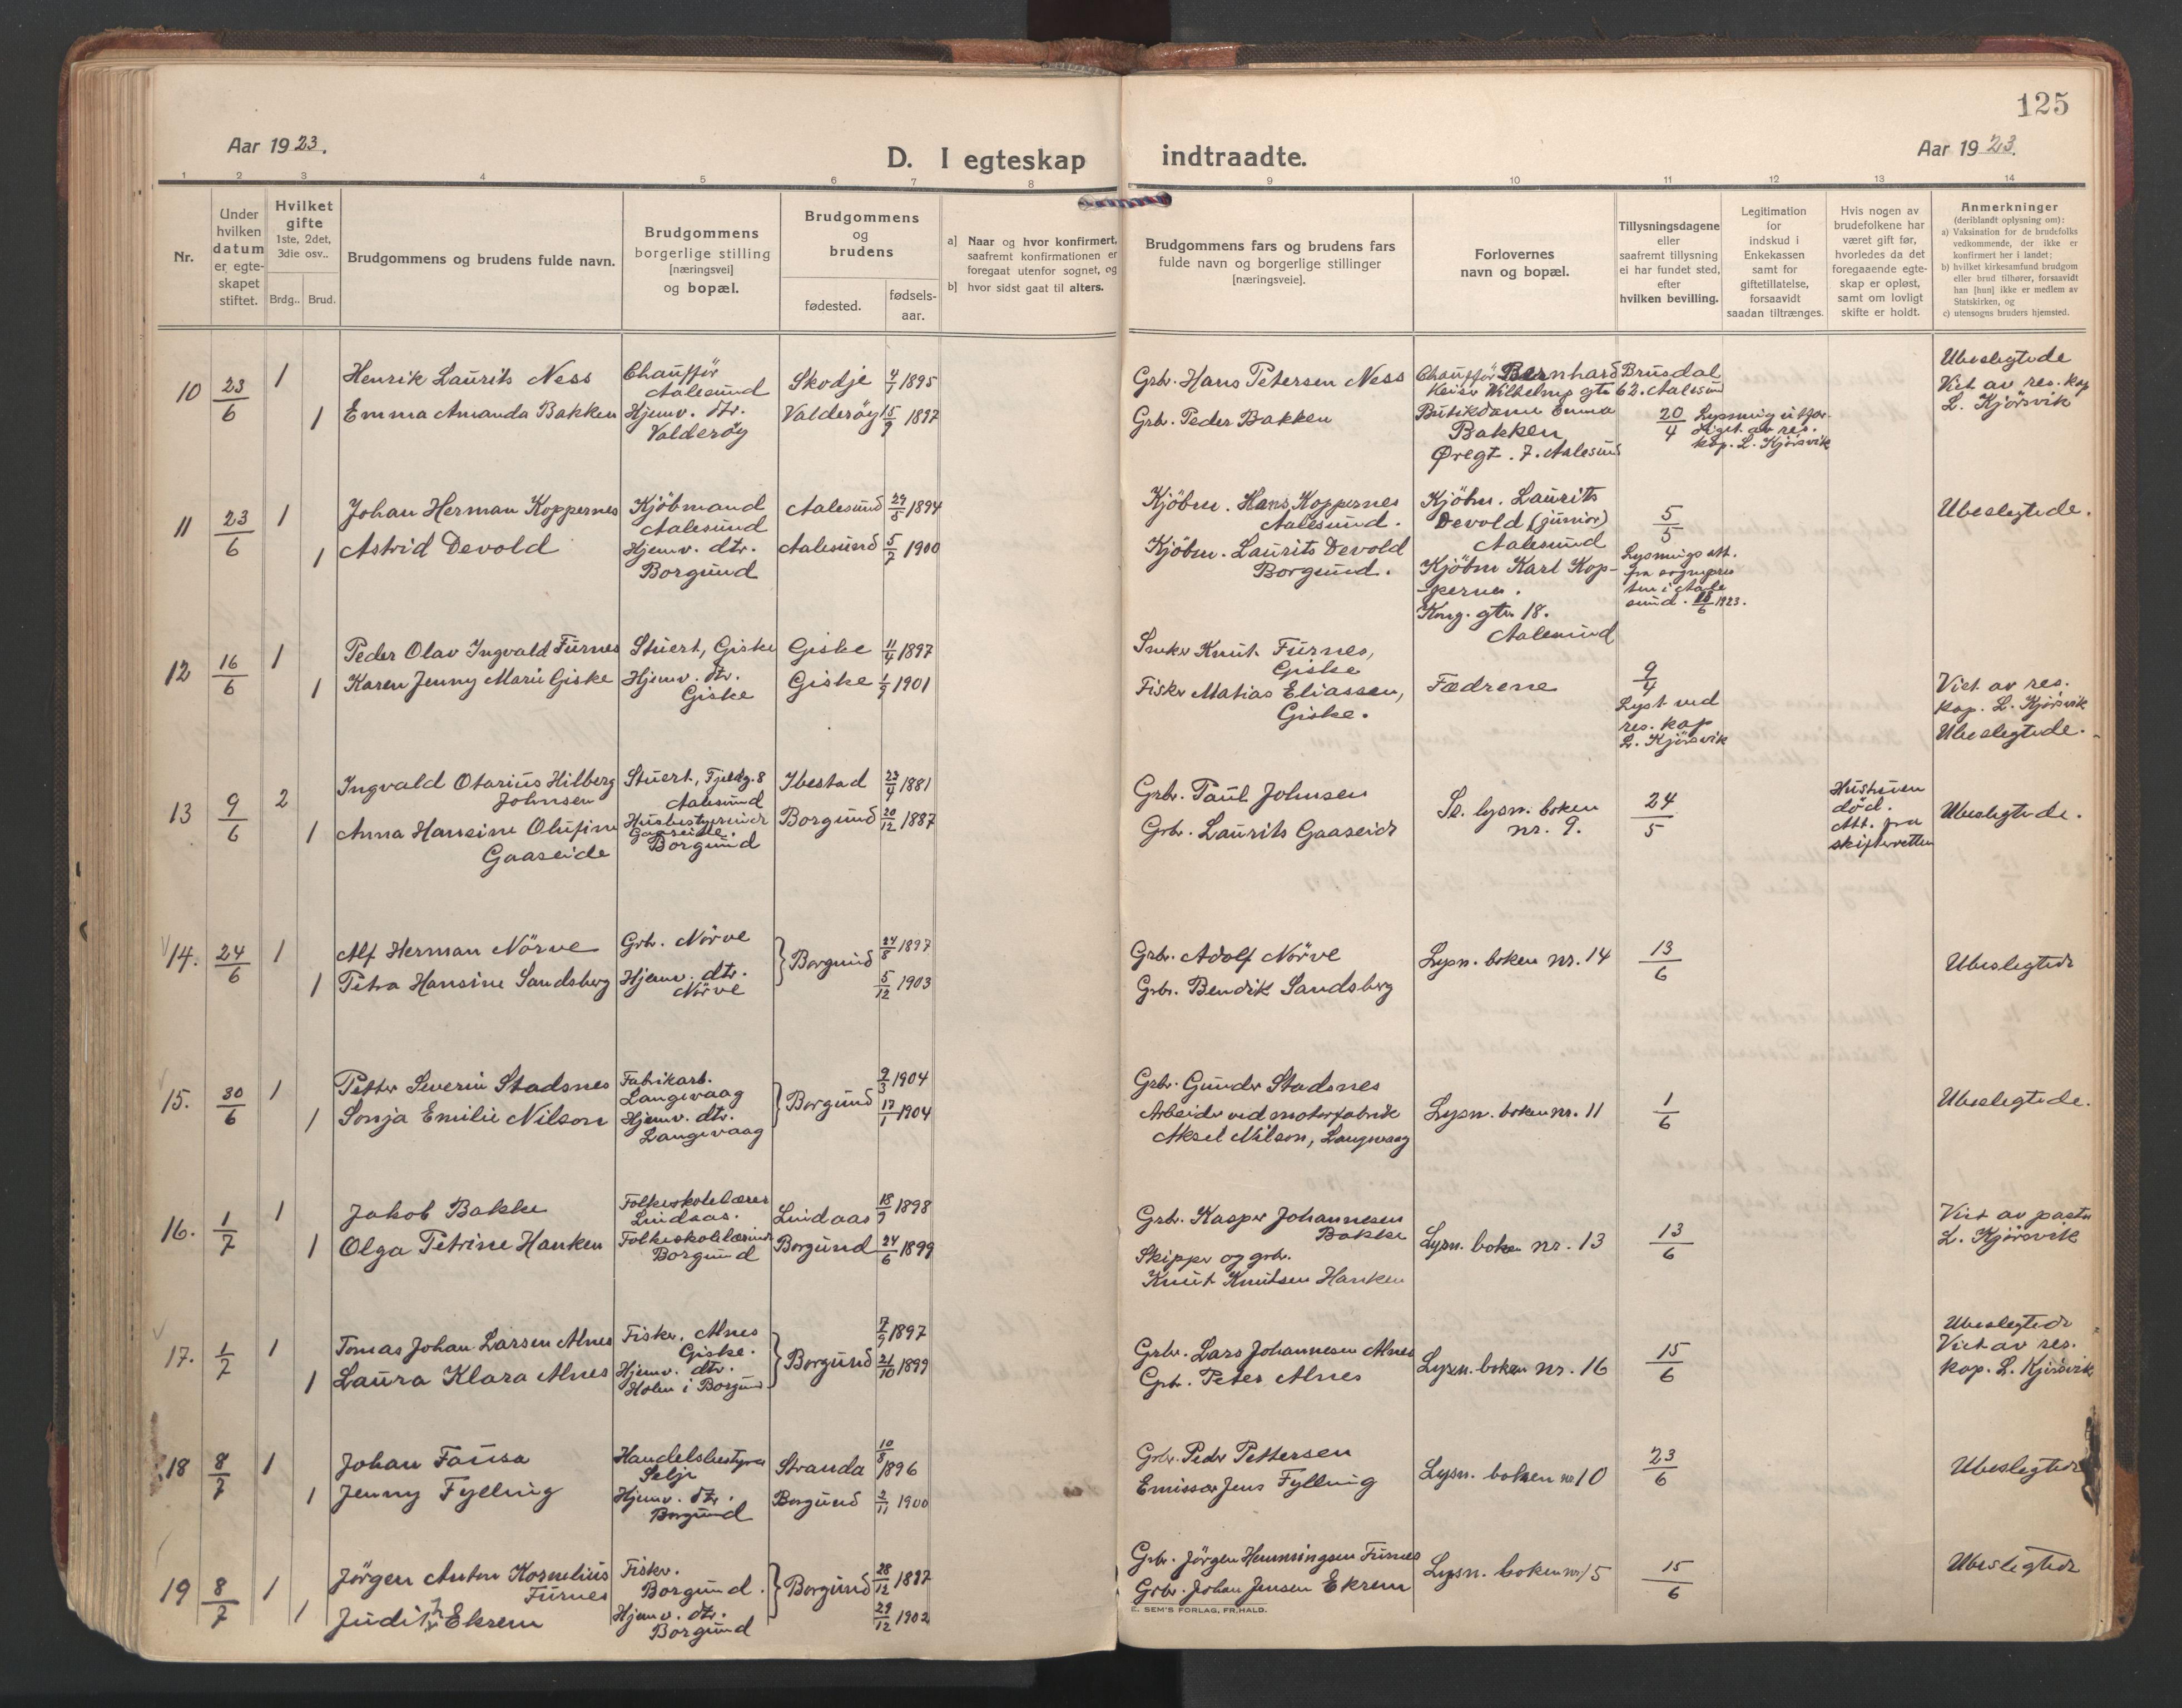 125
Aar 1923.
D. I egteskap indtraadte.
Aar 1923.
1 2 3 4 5 6 7 8 9 10 11 12 13 14
Nr.
Under
hvilken
datum
er egte-
skapet
stiftet.
Hvilket
gifte
1ste, 2det,
3die osv..
Brdg.. Brud.
Brudgommens og brudens fulde navn.
Brudgommens
borgerlige stilling
[næringsvei]
og bopæl.
Brudgommens
og
brudens
fødested.
fødsels-
aar.
a] Naar og hvor konfirmert,
saafremt konfirmationen er
foregaat utenfor sognet, og
b] hvor sidst gaat til alters.
Brudgommens fars og brudens fars
fulde navn og borgerlige stillinger
[næringsveie].
Forlovernes
navn og bopæl.
Tillysningsdagene
eller
saafremt tillysning
ei har fundet sted,
efter
hvilken bevilling.
Legitimation
for
indskud i
Enkekassen
samt for
giftetillatelse,
forsaavidt
saadan tiltrænges.
Hvis nogen av
brudefolkene har
været gift før,
hvorledes da det
foregaaende egte-
skap er opløst,
samt om lovligt
skifte er holdt.
Anmerkninger
(deriblandt oplysning om):
a) Vaksination for de brudefolks
vedkommende, der ikke er
konfirmert her i landet;
b) hvilket kirkesamfund brudgom
eller brud tilhører, forsaavidt
han [hun] ikke er medlem av
Statskirken, og
c) utensogns bruders hjemsted.
10 23/6 1
Henrik Laurits Ness
Chauffør
Aalesund
Skodje 4/7 1895
1 Emma Amanda Bakken
Hjemv. dtr.
Valderøy
Valderøy 15/9 1897
Grbr. Hans Petersen Ness
Grbr. Peder Bakken
Chauffør Bernhard Brusdal
Keiser Wilhelms gt 62. Aalesund
Butikdame Emma
Bakken
Øregt. 7. Aalesund
20/4 Lysning utfør-
diget av res.
kap. L. Kjørsvik
Ubeslegtede
Viet av res. kap
L. Kjørsvik
11 23/6 1
Johan Herman Koppernes
Kjøbmand
Aalesund
Aalesund 29/5 1894
1 Astrid Devold
Hjemv. dtr.
Borgund
Aalesund 5/7 1900
Kjøbm. Hans Koppernes
Aalesund.
Kjøbm. Laurits Devold
Borgund.
Kjøbm. Laurits
Devold (junior)
Aalesund
Kjøbm Karl Kop-
pernes.
Kong. gtr. 18.
Aalesund
5/5
Lysnings att.
fra sogepres
ten i Aale
sund. 18/6 1923.
Ubeslegtede.
12 16/6 1
Peder Olav Ingvald Furnes
Stuert, Giske
Giske 11/4 1897
1 Karen Jenny Marie Giske
Hjemv. dtr.
Giske
Giske 1/9 1901
Snekr Knut Furnes,
Giske
Fiskr Matias Eliassen,
Giske.
Fædrene
9/4
Lyst ved
res. kap
L. Kjørsvik
Viet av res.
kap. L. Kjørsvik
Ubeslegtede.
13 9/6 2
Ingvald Otarius Hilberg
Johnsen
Stuert, Fjeldg. 8
Aalesund
Ibestad 23/4 1881
1 Anna Hansine Olufine
Gaaseide
Husbestyrerinde
Gaaseide.
Borgund
Borgund 20/12 1887
Grbr. Paul Johnsen
Grbr. Laurits Gaaseide
Se. lysn. boken
nr. 9.
24/5
Hustruen
død.
Att. fra
skifteretten
Ubeslegtede.
14. 24/6 1
Alf Herman Nörve
Grbr. Nörve
24/8 1897
1 Petra Hansine Sandsberg
Hjemv. dtr.
Nörve
Borgund
5/12 1903
Grbr. Adolf Nörve
Grbr. Bendik Sandsberg
Lysn. boken nr. 14
13/6
Ubeslegtede
15. 30/6 1
Petter Severin Stadsnes
Fabrikarb.
Langevaag
9/3 1904
1 Sonja Emilie Nilson
Hjemv. dtr.
Langevaag
Borgund
17/1 1904
Grbr. Gunder Stadsnes
Arbeider ved motorfabrik
Aksel Nilson, Langevaag
Lysn. boken nr. 11
1/6
Ubeslegtede.
16. 1/7 1
Jakob Bakke
Folkeskolelærer
Lindaas.
Lindaas 18/9 1898
1 Olga Petrine Hanken
Folkeskolelærerinde
Borgund
Borgund 24/6 1899
Grbr. Kasper Johannesen
Bakke
Skipper og grbr.
Knut Knutsen Hanken
Lysn. boken nr. 13
13/6
Viet av pastor
L. Kjørsvik
17. 1/7 1
Tomas Johan Larsen Alnes
Fiskr. Alnes
Giske.
7/9 1897
1 Laura Klara Alnes
Hjemv. dtr.
Holen i Borgund
Borgund
21/10 1899
Grbr. Lars Johannesen Alnes
Grbr. Peter Alnes
Lysn. boken nr. 16
15/6
Ubeslegtede
Viet av res.
kap. L. Kjørsvik
18 8/7 1
Johan Fausa
Handelsbestyrer
Selje
Stranda 10/8 1896
1 Jenny Fylling
Hjemv. dtr.
Borgund
Borgund 2/11 1900
Grbr. Peder Pettersen
Emissær Jens Fylling
Lysn. boken nr 10
23/6
Ubeslegtede
19 8/7 1
Jörgen Anton Kornelius
Furnes
Fiskr.
Borgund.
28/12 1897
1 Judith Ekrem
Hjemv. dtr.
Borgund
Borgund
29/12 1902
Grbr. Jörgen Hemmingsen Furnes
Grbr. Johan Jensen Ekrem
Lysn. boken nr 15
15/6
Ubeslegtede
E. SEM'S FORLAG, FR.HALD.